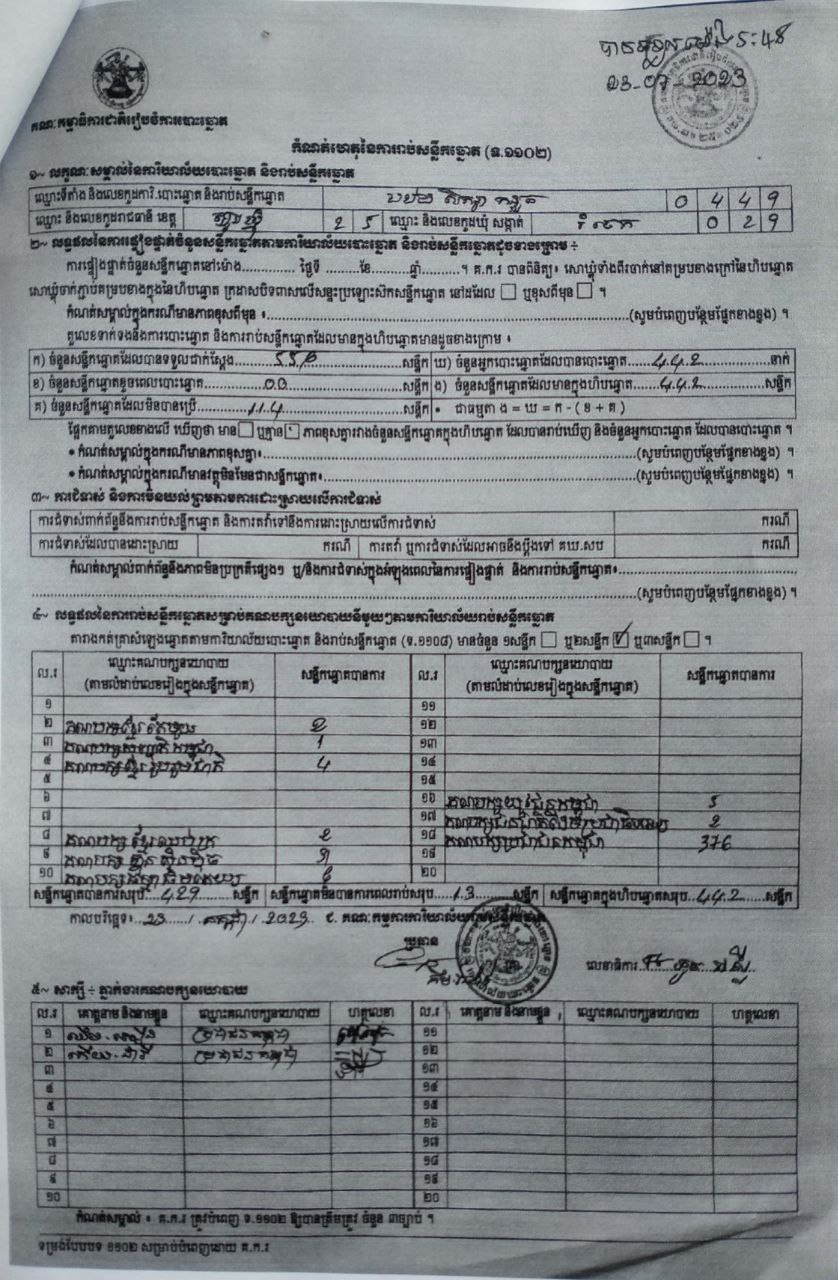 បានទទួលម៉ោង ៖
23-07-2023
គណៈកម្មាធិការជាតិរៀបចំការបោះឆ្នោត
កំណត់ហេតុនៃការរាប់សន្លឹកឆ្នោត (ទ.១១០២)
១~ លក្ខណៈសម្គាល់នៃការិយាល័យបោះឆ្នោត និងរាប់សន្លឹកឆ្នោត
ឈ្មោះទីតាំង និងលេខកូដការិ.បោះឆ្នោត និងរាប់សន្លឹកឆ្នោត 0449
ឈ្មោះ និងលេខកូដរាជធានី ខេត្ត 25 ឈ្មោះ និងលេខកូដឃុំ សង្កាត់ 029
២~ លទ្ធផលនៃការផ្ទៀងផ្ទាត់ចំនួនសន្លឹកឆ្នោតតាមការិយាល័យបោះឆ្នោត និងរាប់សន្លឹកឆ្នោតដូចខាងក្រោម ÷
ការផ្ទៀងផ្ទាត់ចំនួនសន្លឹកឆ្នោតនៅម៉ោង.............. ថ្ងៃទី .........ខែ...........ឆ្នាំ..........។ គ.ក.រ បានពិនិត្យ៖ សោឃ្លុំទាំងពីរចាក់នៅគម្របខាងក្រៅនៃហិបឆ្នោត
សោឃ្លុំចាក់ភ្ជាប់គម្របខាងក្នុងនៃហិបឆ្នោត ក្រដាសបិទពាសលើសន្ទះប្រឡោះសិកសន្លឹកឆ្នោត នៅដដែល ☐ ឬខុសពីមុន ☐ ។
កំណត់សម្គាល់ក្នុងករណីមានភាពខុសពីមុន ៖..................(សូមបំពេញបន្ថែមផ្នែកខាងខ្នង) ។
តួលេខទាក់ទងនឹងការបោះឆ្នោត និងការរាប់សន្លឹកឆ្នោតដែលមានក្នុងហិបឆ្នោតមានដូចខាងក្រោម ៖
ក) ចំនួនសន្លឹកឆ្នោតដែលបានទទួលជាក់ស្តែង.....សន្លឹក ឃ) ចំនួនអ្នកបោះឆ្នោតដែលបានបោះឆ្នោត...442...នាក់
ខ) ចំនួនសន្លឹកឆ្នោតខូចពេលបោះឆ្នោត......00......សន្លឹក ង) ចំនួនសន្លឹកឆ្នោតដែលមានក្នុងហិបឆ្នោត...442...សន្លឹក
គ) ចំនួនសន្លឹកឆ្នោតដែលមិនបានប្រើ......114......សន្លឹក • ជាធម្មតា ង = ឃ = ក - ( ខ + គ )
ផ្អែកតាមតួលេខខាងលើ ឃើញថា មាន ☐ ឬគ្មាន ☑ ភាពខុសគ្នារវាងចំនួនសន្លឹកឆ្នោតក្នុងហិបឆ្នោត ដែលបានរាប់ឃើញ និងចំនួនអ្នកបោះឆ្នោត ដែលបានបោះឆ្នោត ។
• កំណត់សម្គាល់ក្នុងករណីមានភាពខុសគ្នា៖..................(សូមបំពេញបន្ថែមផ្នែកខាងខ្នង) ។
• កំណត់សម្គាល់ក្នុងករណីមានវត្ថុមិនមែនជាសន្លឹកឆ្នោត៖..................(សូមបំពេញបន្ថែមផ្នែកខាងខ្នង) ។
៣~ ការជំទាស់ និងការមិនយល់ព្រមតាមការដោះស្រាយលើការជំទាស់
ការជំទាស់ពាក់ព័ន្ធនឹងការរាប់សន្លឹកឆ្នោត និងការតវ៉ាទៅនឹងការដោះស្រាយលើការជំទាស់ ករណី
ការជំទាស់ដែលបានដោះស្រាយ ករណី ការតវ៉ា ឬការជំទាស់ដែលអាចនឹងប្តឹងទៅ គឃ.សប ករណី
កំណត់សម្គាល់ពាក់ព័ន្ធនឹងភាពមិនប្រក្រតីផ្សេងៗ ឬ/និងការជំទាស់ក្នុងអំឡុងពេលនៃការផ្ទៀងផ្ទាត់ និងការរាប់សន្លឹកឆ្នោត៖..................
..................(សូមបំពេញបន្ថែមផ្នែកខាងខ្នង) ។
៤~ លទ្ធផលនៃការរាប់សន្លឹកឆ្នោតសម្រាប់គណបក្សនយោបាយនីមួយៗតាមការិយាល័យរាប់សន្លឹកឆ្នោត
តារាងកត់គ្រាសំឡេងឆ្នោតតាមការិយាល័យបោះឆ្នោត និងរាប់សន្លឹកឆ្នោត (ទ.១១០៨) មានចំនួន ១សន្លឹក ☐ ឬ២សន្លឹក ☑ ឬ៣សន្លឹក ☐ ។
ល.រ ឈ្មោះគណបក្សនយោបាយ (តាមលំដាប់លេខរៀងក្នុងសន្លឹកឆ្នោត) សន្លឹកឆ្នោតបានការ ល.រ ឈ្មោះគណបក្សនយោបាយ (តាមលំដាប់លេខរៀងក្នុងសន្លឹកឆ្នោត) សន្លឹកឆ្នោតបានការ
១ ១១
២ គណបក្សខ្មែរតែមួយ 2 ១២
៣ គណបក្សសញ្ជាតិកម្ពុជា 1 ១៣
៤ គណបក្សខ្មែររួបរួមជាតិ 4 ១៤
៥ ១៥
៦ ១៦ គណបក្សយុវជនកម្ពុជា 5
៧ ១៧ 2
៨ គណបក្សខ្មែរឈប់ក្រ 2 ១៨ គណបក្សប្រជាជនកម្ពុជា 376
៩ គណបក្សហ្វ៊ុនស៊ិនប៉ិច ១៩
១០ គណបក្ស ២០
សន្លឹកឆ្នោតបានការសរុប...429...សន្លឹក សន្លឹកឆ្នោតមិនបានការពេលរាប់សរុប...13...សន្លឹក សន្លឹកឆ្នោតក្នុងហិបឆ្នោតសរុប...442...សន្លឹក
កាលបរិច្ឆេទ៖ 23 / កក្កដា / 2023 គណៈកម្មការការិយាល័យរាប់សន្លឹកឆ្នោត
ប្រធាន
លេខាធិការ
៥~ សាក្សី ÷ ភ្នាក់ងារគណបក្សនយោបាយ
ល.រ គោត្តនាម និងនាមខ្លួន ឈ្មោះគណបក្សនយោបាយ ហត្ថលេខា ល.រ គោត្តនាម និងនាមខ្លួន ឈ្មោះគណបក្សនយោបាយ ហត្ថលេខា
១ ប្រជាជនកម្ពុជា ១១
២ ប្រជាជនកម្ពុជា ១២
៣ ១៣
៤ ១៤
៥ ១៥
៦ ១៦
៧ ១៧
៨ ១៨
៩ ១៩
១០ ២០
កំណត់សម្គាល់ ៖ គ.ក.រ ត្រូវបំពេញ ទ.១១០២ ឱ្យបានត្រឹមត្រូវ ចំនួន ៣ច្បាប់ ។
ទម្រង់បែបបទ ១១០២ សម្រាប់បំពេញដោយ គ.ក.រ